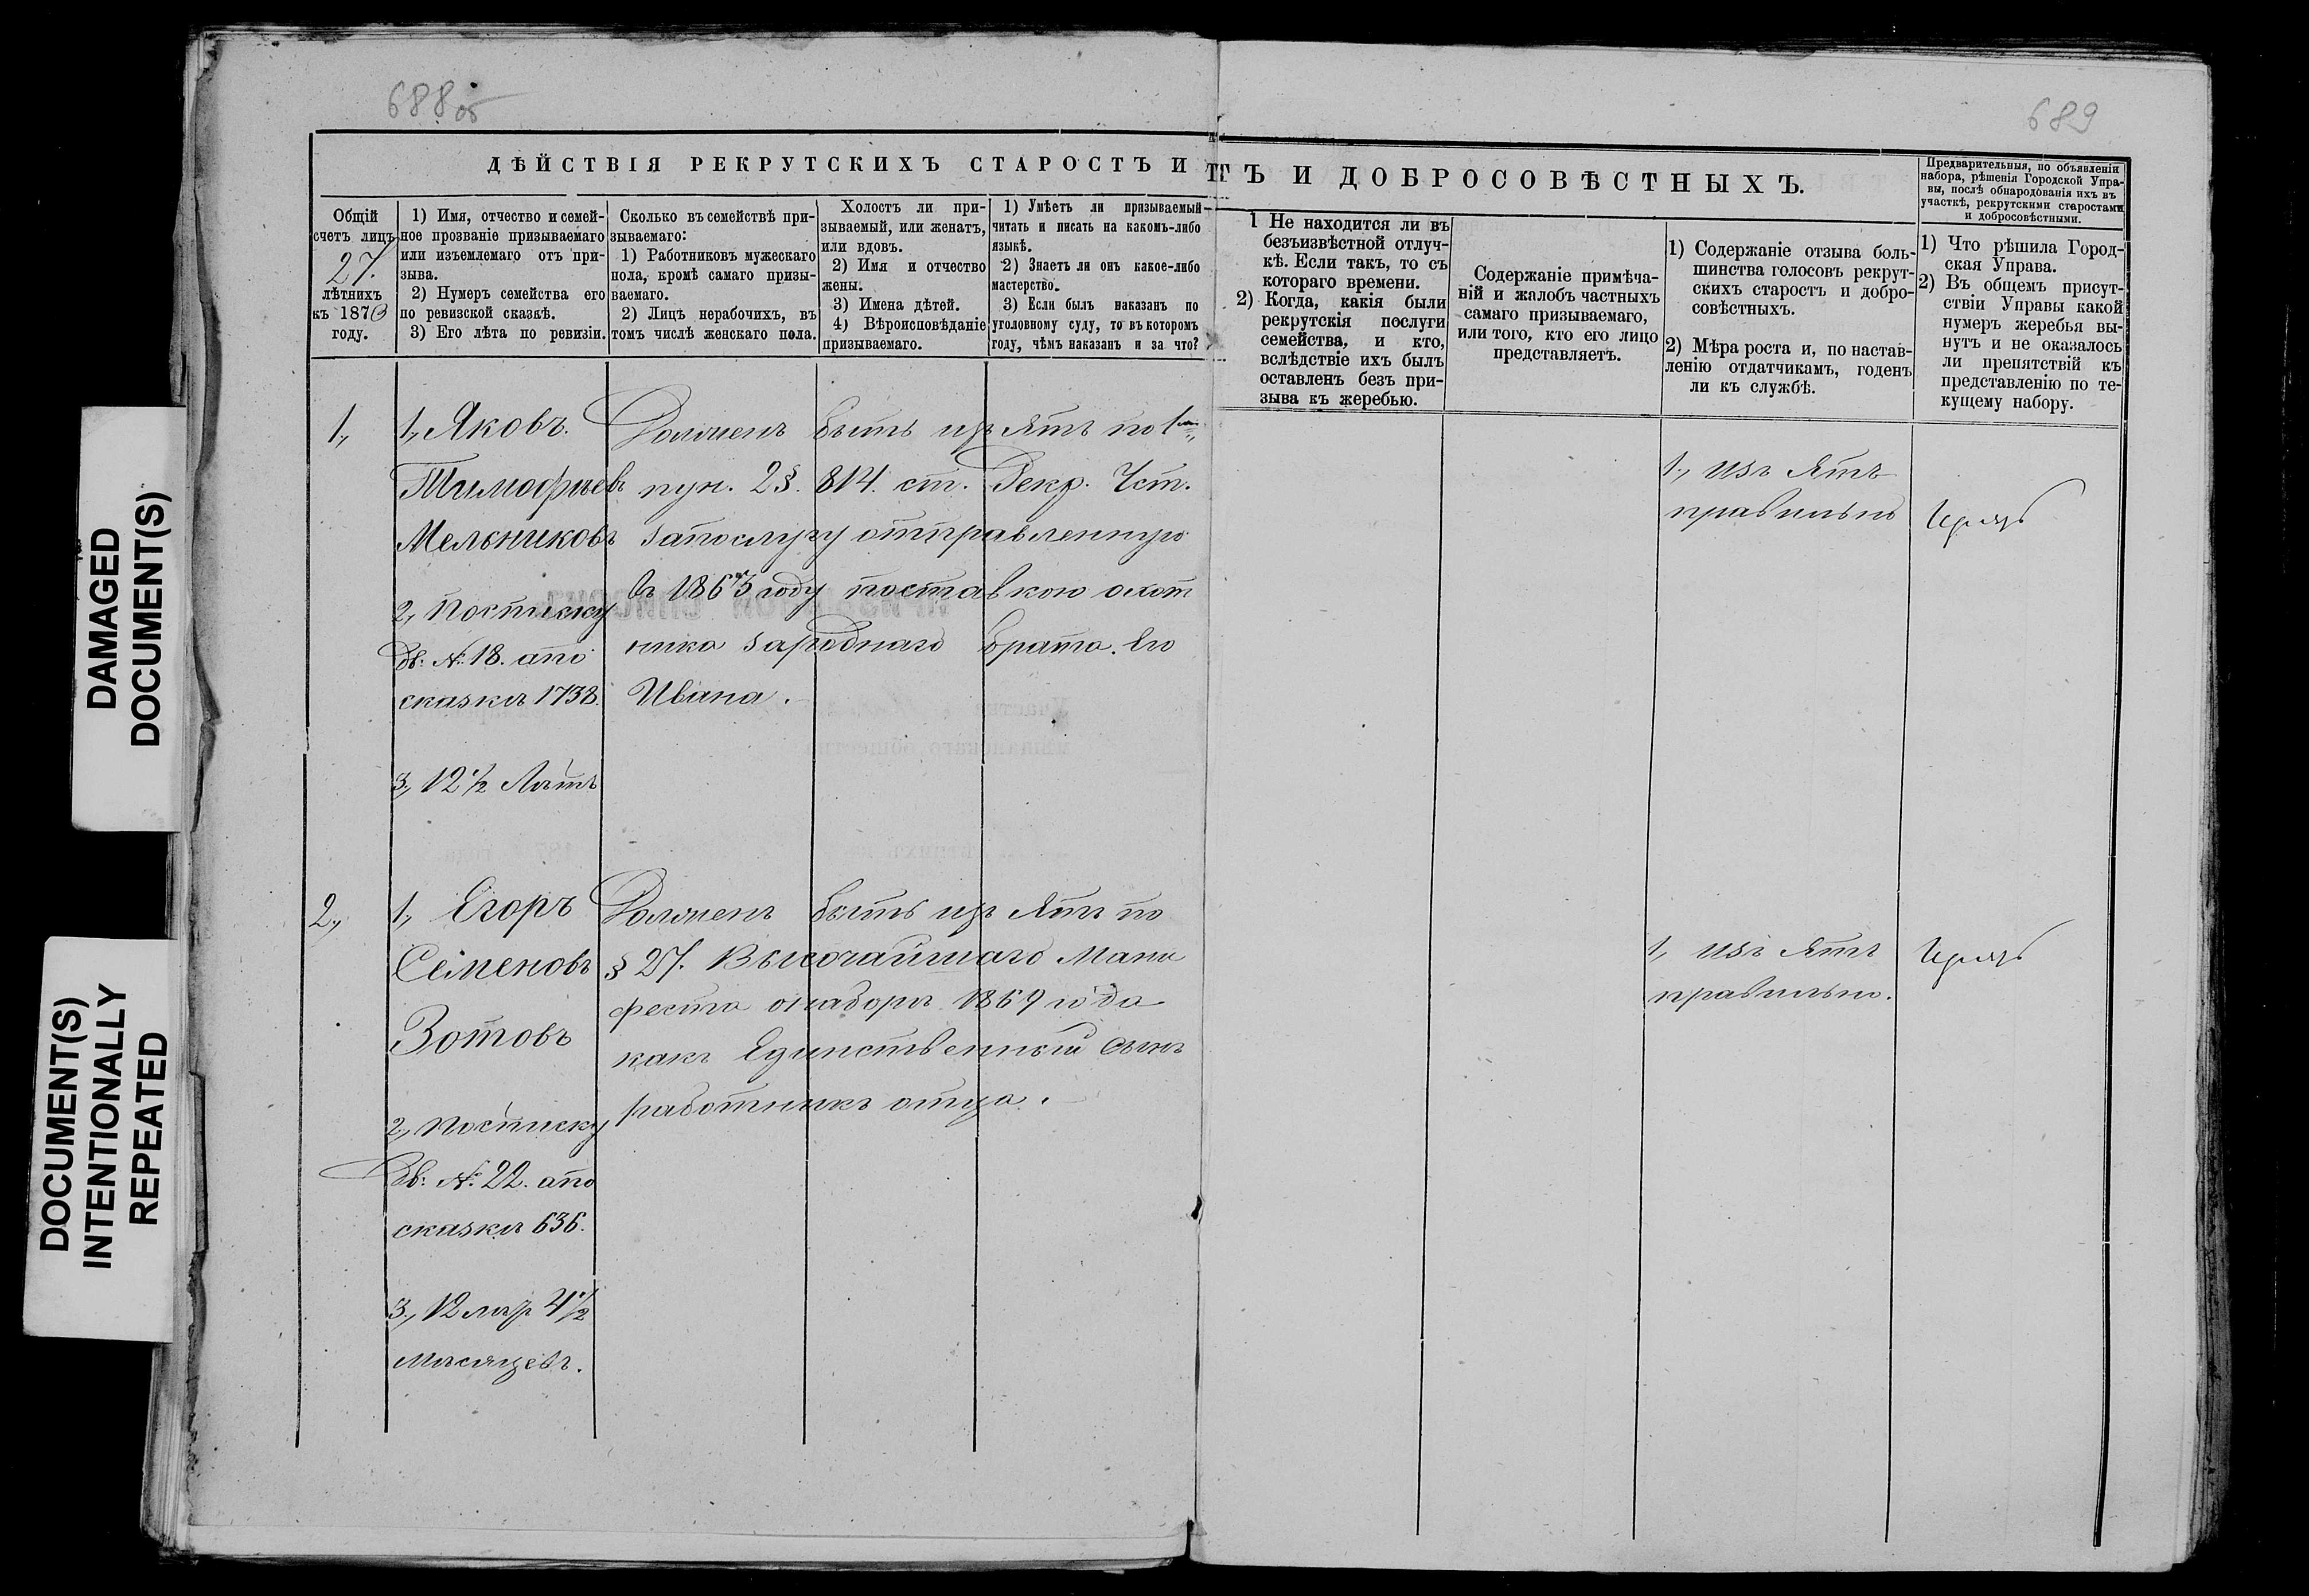 688 об
689
ДѢЙСТВІЯ РЕКРУТСКИХЪ СТАРОСТЪ И
ТЪ И ДОБРОСОВѢСТНЫХЪ.
Общій
счетъ лицъ
27.
лѣтнихъ
къ 1870
году.
1) Имя, отчество и семей-
ное прозваніе призываемаго
или изъемлемаго отъ при-
зыва.
2) Нумеръ семейства его
по ревизской сказкѣ.
3) Его лѣта по ревизіи.
Сколько въ семействѣ при-
зываемаго:
1) Работниковъ мужескаго
пола, кромѣ самаго призы-
ваемаго.
2) Лицъ нерабочихъ, въ
томъ числѣ женскаго пола.
Холостъ ли при-
зываемый, или женатъ,
или вдовъ.
2) Имя и отчество
жены.
3) Имена дѣтей.
4) Вѣроисповѣданіе
призываемаго.
1) Умѣетъ ли призываемый
читать и писать на какомъ-либо
языкѣ.
2) Знаетъ ли онъ какое-либо
мастерство.
3) Если былъ наказанъ по
уголовному суду, то въ которомъ
году, чѣмъ наказанъ и за что?
1 Не находится ли въ
безъизвѣстной отлуч-
кѣ. Если такъ, то съ
котораго времени.
2) Когда, какія были
рекрутскія послуги
семейства, и кто,
вслѣдствіе ихъ былъ
оставленъ безъ при-
зыва къ жеребью.
Содержаніе примѣча-
ній и жалобъ частныхъ
самаго призываемаго,
или того, кто его лицо
представляетъ.
1) Содержаніе отзыва боль-
шинства голосовъ рекрут-
скихъ старостъ и добро-
совѣстныхъ.
2) Мѣра роста и, по настав-
ленію отдатчикамъ, годенъ
ли къ службѣ.
Предварительныя, по объявленіи
набора, рѣшенія Городской Упра-
вы, послѣ обнародованія ихъ въ
участкѣ, рекрутскими старостами
и добросовѣстными.
1) Что рѣшила Город-
ская Управа.
2) Въ общемъ присут-
ствіи Управы какой
нумеръ жеребья вы-
нутъ и не оказалось
ли препятствій къ
представленію по те-
кущему набору.
1,
1, Яковъ.
Тимофѣевъ
Мельниковъ
2, По списку
Дв: №: 18. а по
сказкѣ 1738.
3, 12 1/2 Лѣтъ
Долженъ быть изъятъ по 1му
пун. 2 §. 814. ст. Рекр. Уст.
за послугу отправленную
въ 1865 году поставкою охот
ника за роднаго брата. Его
Ивана.
1, изъ ятъ
правильно
Изъятъ
2,
1, Егоръ
Семеновъ
Зотовъ
2, По списку
Дв: №: 22. а по
сказкѣ 636.
3, 12 лѣтъ 4 1/2
мѣсяцевъ.
Долженъ быть изъ ятъ по
§ 27. Высочайшаго Мани
феста о наборѣ 1869 года
какъ Единственный сынъ
работникъ отца.
1, изъ ятъ
правильно.
Изъятъ
DAMAGED
DOCUMENT(S)
DOCUMENT(S)
INTENTIONALLY
REPEATED